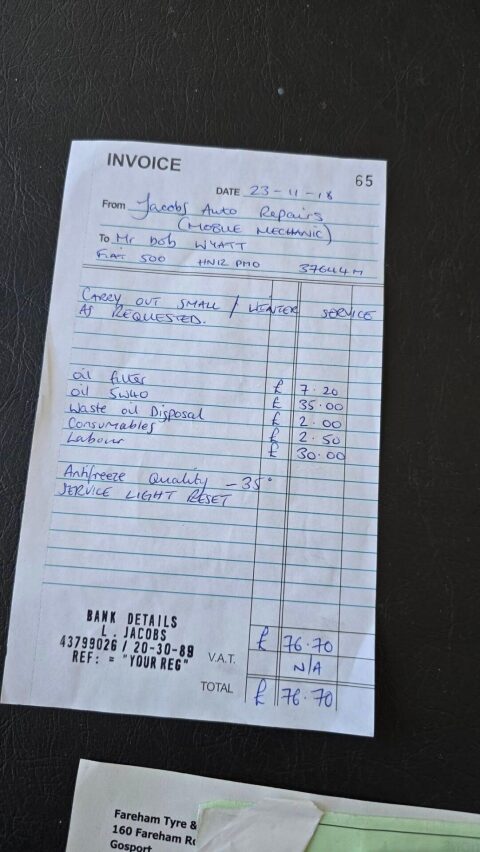 INVOICE
65
DATE 23-11-18
From Jacobs Auto Repairs
(MOBILE MECHANIC)
To Mr bob WYATT
FIAT 500 HN12 PMO 37644M
CARRY OUT SMALL / WINTER SERVICE
AS REQUESTED.
oil filter £ 7.20
oil 5W40 £ 35.00
Waste oil Disposal £ 2.00
Consumables £ 2.50
Labour £ 30.00
Antifreeze Quality -35°
SERVICE LIGHT RESET
BANK DETAILS
L. JACOBS
43799026 / 20-30-89
REF: = "YOUR REG"
£ 76.70
V.A.T. N/A
TOTAL £ 76.70
Fareham Tyre &
160 Fareham
Gosport